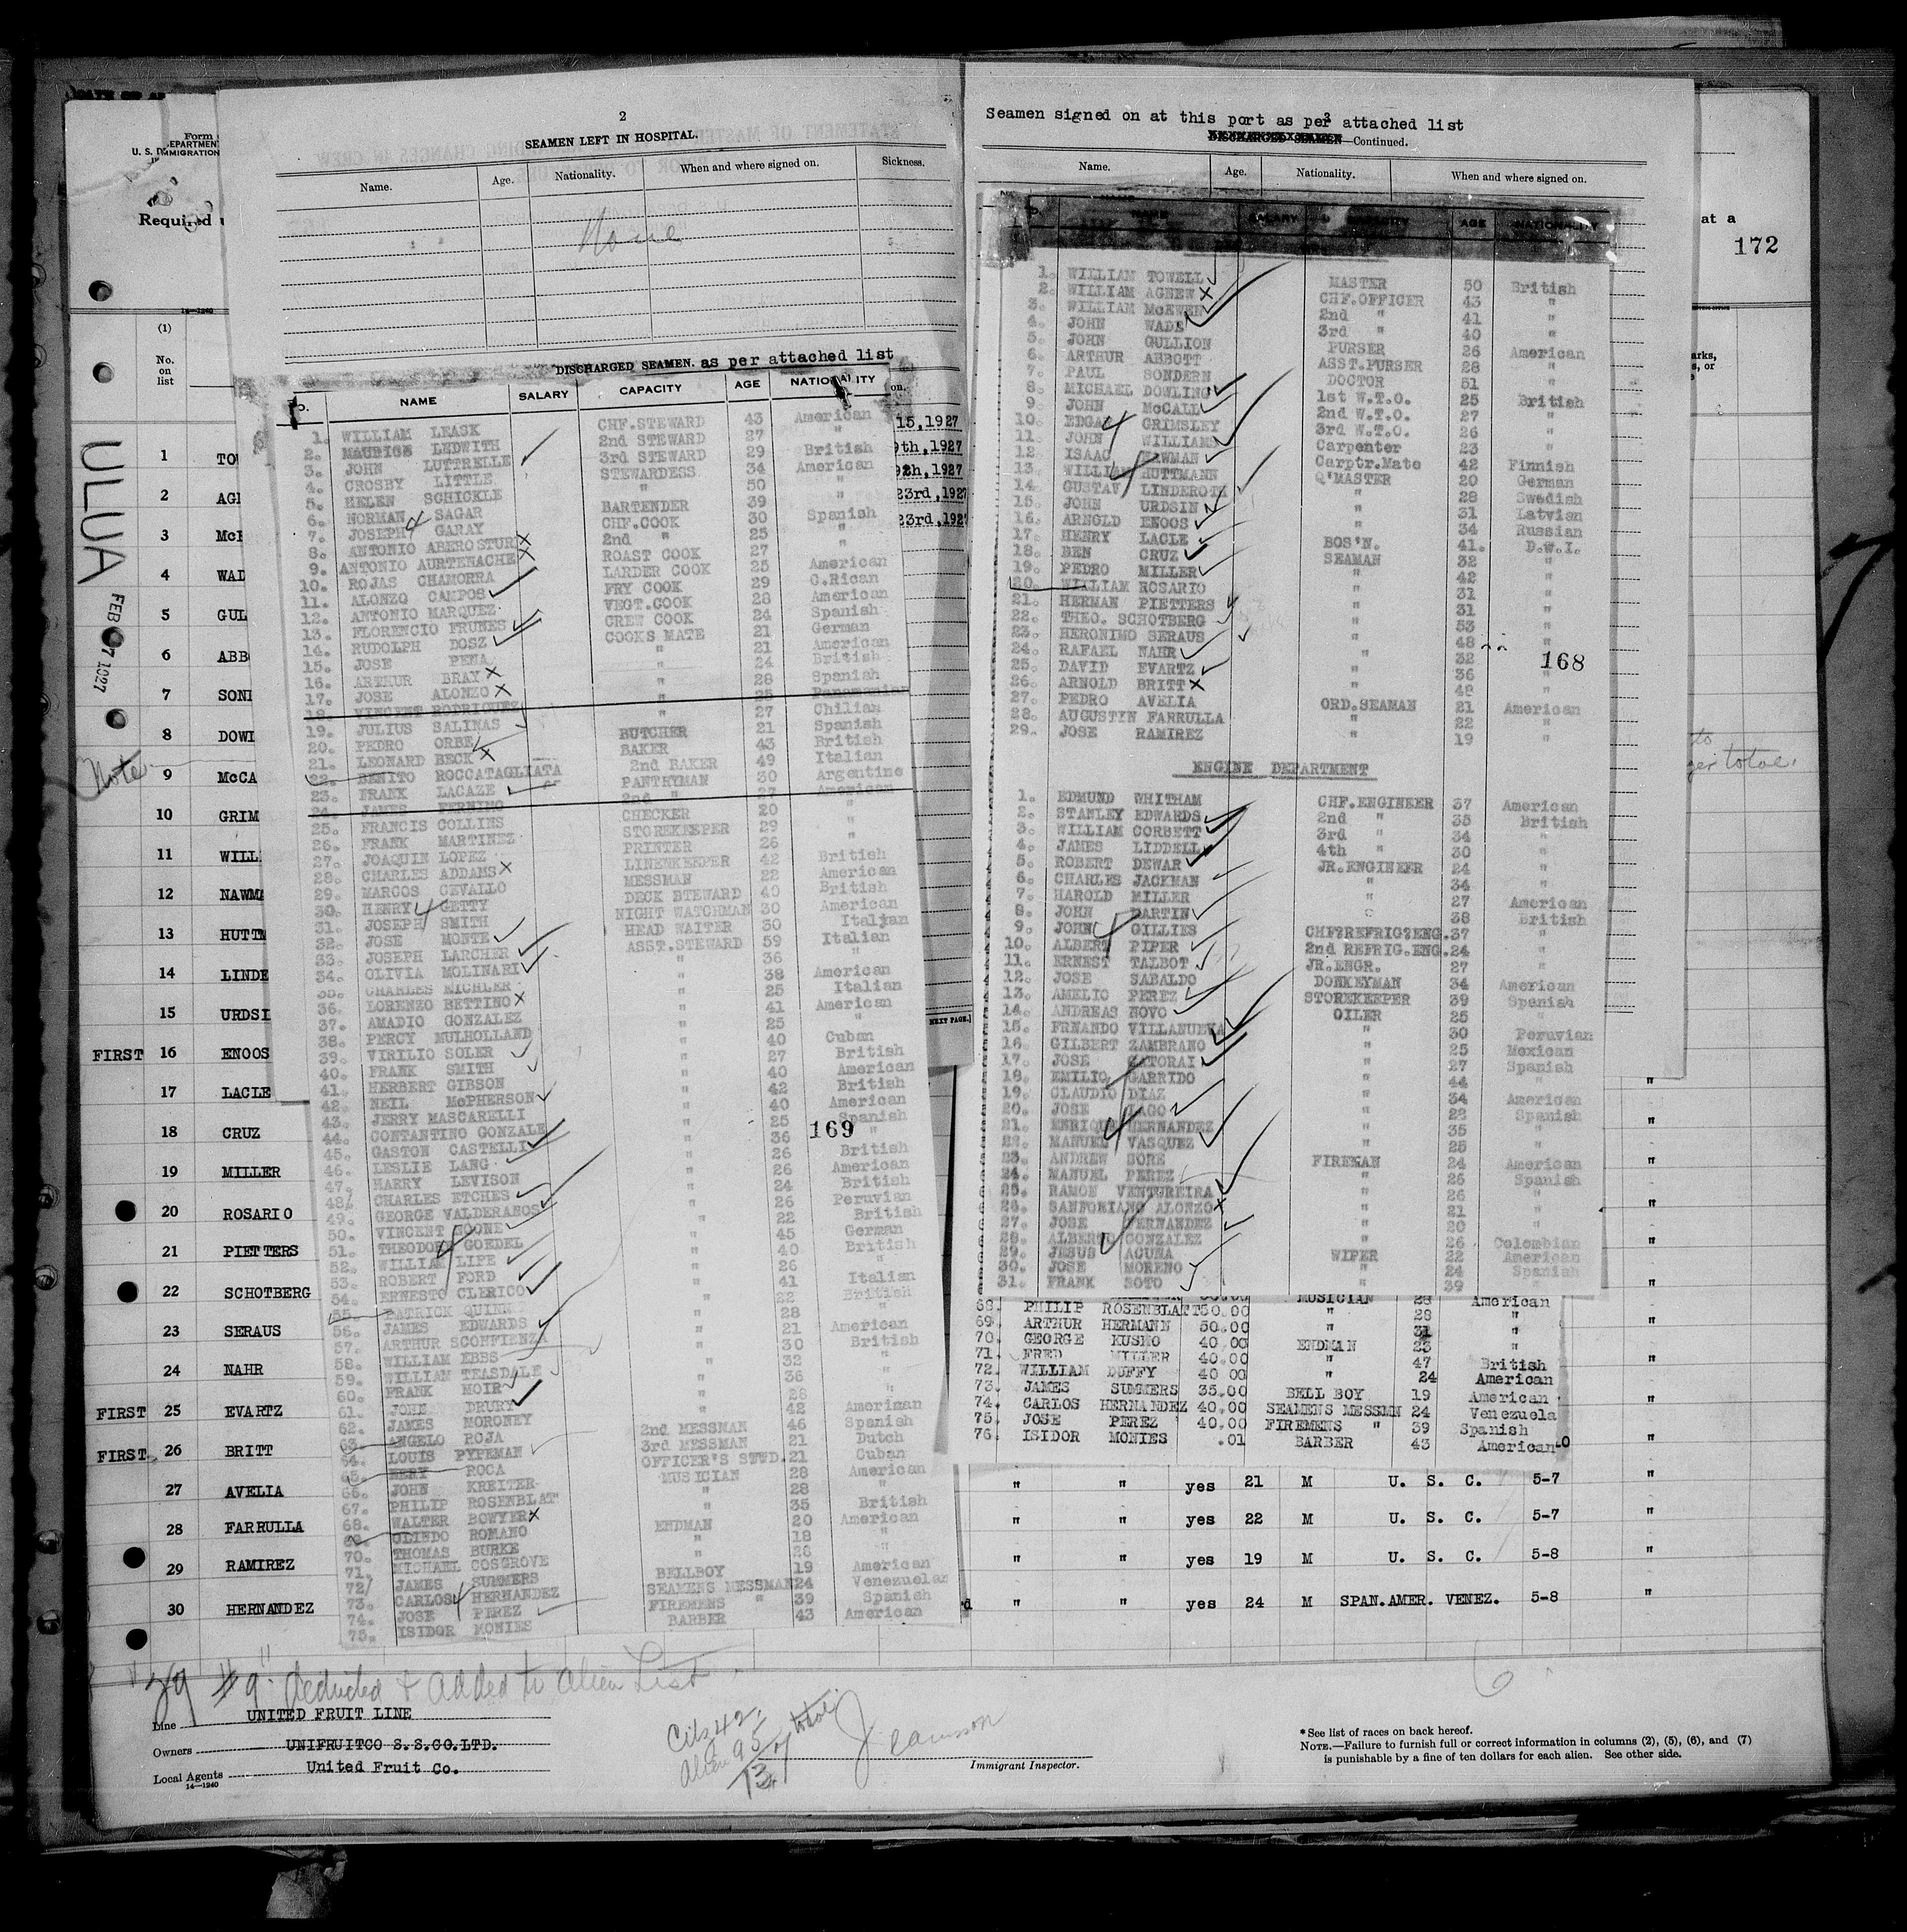 2
SEAMEN LEFT IN HOSPITAL.
Name. Age. Nationality. When and where signed on. Sickness.
None
DISCHARGED SEAMEN. as per attached list
NAME SALARY CAPACITY AGE NATIONALITY
1. WILLIAM LEASK CHF.STEWARD 43 American
2. MAURICE LEDWITH 2nd STEWARD 27 "
3. JOHN LUTTRELLE 3rd STEWARD 29 British
4. CROSBY LITTLE STEWARDESS 34 American
5. HELEN SCHICKLE " 50 "
6. NORMAN SAGAR BARTENDER 39 "
7. JOSEPH GARAY CHF.COOK 30 Spanish
8. ANTONIO ABEROSTURI 2nd " 25 "
9. ANTONIO AURTENACHE ROAST COOK 27 "
10. ROJAS CHAMORRA LARDER COOK 25 American
11. ALONZO CAMPOS FRY COOK 29 C.Rican
12. ANTONIO MARQUEZ VEGT.COOK 28 American
13. FLORENCIO FRUNES CREW COOK 24 Spanish
14. RUDOLPH DOSZ COOKS MATE 21 German
15. JOSE PENA " 21 American
16. ARTHUR BRAY " 24 British
17. JOSE ALONZO " 28 Spanish
18. VINCENT RODRIGUEZ " 25 Panamanian
19. JULIUS SALINAS " 27 Chilian
20. PEDRO ORBE BUTCHER 21 Spanish
21. LEONARD BECK BAKER 43 British
22. BENITO ROCCATAGLIATA 2nd BAKER 49 Italian
23. FRANK LACAZE PANTRYMAN 30 Argentine
24. JAMES FERNIMO 2nd " 27 American
25. FRANCIS COLLINS CHECKER 20 "
26. FRANK MARTINEZ STOREKEEPER 29 "
27. JOAQUIN LOPEZ PRINTER 26 "
28. CHARLES ADDAMS LINENKEEPER 42 British
29. MARCOS CEVALLO MESSMAN 22 American
30. HENRY GETTY DECK STEWARD 40 British
31. JOSEPH SMITH NIGHT WATCHMAN 30 American
32. JOSE MONTE HEAD WAITER 30 Italian
33. JOSEPH LARCHER ASST.STEWARD 59 Italian
34. OLIVIA MOLINARI " 36 "
35. CHARLES MICHLER " 38 American
36. LORENZO BETTINO " 25 Italian
37. AMADIO GONZALEZ " 41 American
38. PERCY MULHOLLAND " 25 "
39. VIRILIO SOLER " 40 Cuban
40. FRANK SMITH " 27 British
41. HERBERT GIBSON " 40 American
42. NEIL McPHERSON " 42 British
43. JERRY MASCARELLI " 40 American
44. CONTANTINO GONZALE " 25 Spanish
45. GASTON CASTELLI " 36 "
46. LESLIE LANG " 26 British
47. HARRY LEVISON " 26 American
48/ CHARLES ETCHES " 24 British
49. GEORGE VALDERANOS " 26 Peruvian
50. VINCENT COONE " 22 British
51. THEODORE GOEDEL " 45 German
52. WILLIAM LIPE " 40 British
53. ROBERT FORD " 26 "
54. ERNESTO CLERICO " 41 Italian
55. PATRICK QUIENT " 22 British
56. JAMES EDWARDS " 28 "
57. ARTHUR SCONFIENZA " 21 American
58. WILLIAM EBBS " 30 British
59. WILLIAM TEASDALE " 32 "
60. FRANK MOIR " 36 "
61. JOHN DRURY " 28 "
62. JAMES MORONEY " 42 American
63. ANGELO ROJA 2nd MESSMAN 46 Spanish
64. LOUIS PYPEMAN 3rd MESSMAN 21 Dutch
65. ROCA OFFICER'S STWD. 21 Cuban
66. JOHN KREITER MUSICIAN 28 American
67. PHILIP ROSENBLAT " 28 "
68. WALTER BOWYER " 35 British
69. OLINDO ROMANO ENDMAN 20 American
70. THOMAS BURKE " 18 "
71. MICHAEL COSGROVE " 28 "
72/ JAMES SUMMERS BELLBOY 19 American
73. CARLOS HERNANDEZ SEAMENS MESSMAN 24 Venezuelan
74. JOSE PEREZ FIREMENS " 39 Spanish
75. ISIDOR MONIES BARBER 43 American
169
15,1927
9th,1927
23rd,1927
23rd,1927
Seamen signed on at this port as per attached list
3
DISCHARGED SEAMEN—Continued.
Name. Age. Nationality. When and where signed on.
NAME SALARY CAPACITY AGE NATIONALITY
1. WILLIAM TOWELL MASTER 50 British
2. WILLIAM AGNEW CHF.OFFICER 43 "
3. WILLIAM McEWEN 2nd " 41 "
4. JOHN WADE 3rd " 40 "
5. JOHN GULLION PURSER 26 American
6. ARTHUR ABBOTT ASST.PURSER 28 "
7. PAUL SONDERN DOCTOR 51 "
8. MICHAEL DOWLING 1st W.T.O. 25 British
9. JOHN McCALL 2nd W.T.O. 27 "
10. EDGAR GRIMSLEY 3rd W.T.O. 26 "
11. JOHN WILLIAMS Carpenter 23 "
12. ISAAC NAWMAN Carptr.Mate 42 Finnish
13. WILLIAM HUTTMANN Q'MASTER 20 German
14. GUSTAV LINDEROTH " 28 Swedish
15. JOHN URDSIN " 31 Latvian
16. ARNOLD ENOOS " 34 Russian
17. HENRY LACLE BOS'N. 41. D.W.I.
18. BEN CRUZ SEAMAN 32 "
19. PEDRO MILLER " 42 "
20. WILLIAM ROSARIO " 31 "
21. HERMAN PIETTERS " 31 "
22. THEO. SCHOTBERG " 53 "
23. HERONIMO SERAUS " 48 "
24. RAFAEL NAHR " 32 "
25. DAVID EVARTZ " 36 "
26. ARNOLD BRITT " 48 "
27. PEDRO AVELIA ORD.SEAMAN 21 American
28. AUGUSTIN FARRULLA " 22 "
29. JOSE RAMIREZ " 19 "
168
ENGINE DEPARTMENT
1. EDMUND WHITHAM CHF.ENGINEER 37 American
2. STANLEY EDWARDS 2nd " 35 British
3. WILLIAM CORBETT 3rd " 34 "
4. JAMES LIDDELL 4th " 30 "
5. ROBERT DEWAR JR.ENGINEER 24 "
6. CHARLES JACKMAN " 34 "
7. HAROLD MILLER " 27 American
8. JOHN DARTIN " 38 British
9. JOHN GILLIES CHF?REFRIG?ENG. 37 "
10. ALBERT PIPER 2nd REFRIG.ENG. 24 "
11. ERNEST TALBOT JR.ENGR. 27 "
12. JOSE SABALDO DONKEYMAN 34 American
13. AMELIO PEREZ STOREKEEPER 39 Spanish
14. ANDREAS NOVO OILER 25 "
15. FRNANDO VILLANUEVA " 30 Peruvian
16. GILBERT ZAMBRANO " 25 Mexican
17. JOSE SATORAI " 27 Spanish
18. EMILIO GARRIDO " 44 "
19. CLAUDIO DIAZ " 34 American
20. JOSE IAGO " 28 Spanish
21. ENRIQUE HERNANDEZ " 35 "
22. MANUEL VASQUEZ " 25 "
23. ANDREW SORE FIREMAN 24 American
24. MANUEL PEREZ " 26 Spanish
25. RAMON VENTUREIRA " 26 "
26. SANFORIANO ALONZO " 21 "
27. JOSE FERNANDEZ " 20 "
28. ALBERTO GONZALEZ " 26 Colombian
29. JESUS ACUNA WIPER 22 American
30. JOSE MORENO " 24 Spanish
31. FRANK SOTO " 39 "
MUSICIAN 28 American
68. PHILIP ROSENBLATT 50.00 " 28 "
69. ARTHUR HERMANN 50.00 " 31 "
70. GEORGE KUSHO 40.00 ENDMAN 23 "
71. FRED MILLER 40.00 " 47 British
72. WILLIAM DUFFY 40 00 " 24 American
73. JAMES SUMMERS 35.00 BELL BOY 19 American
74. CARLOS HERNANDEZ 40.00 SEAMENS MESSMN 24 Venezuela
75. JOSE PEREZ 40.00 FIREMENS " 39 Spanish
76. ISIDOR MONIES .01 BARBER 43 American
Form
DEPARTMENT
U. S.
IMMIGRATION
Required
14—1240
at a
172
ULUA
FEB 7 1927
Note
(1)
No. on list
1 TOW
2 AGN
3 McE
4 WAD
5 GUL
6 ABB
7 SON
8 DOWI
9 McCA
10 GRIM
11 WILL
12 NAWMA
13 HUTTN
14 LINDE
15 URDSI
FIRST 16 ENOOS
17 LACLE
18 CRUZ
19 MILLER
20 ROSARIO
21 PIETTERS
22 SCHOTBERG
23 SERAUS
24 NAHR
FIRST 25 EVARTZ
FIRST 26 BRITT
27 AVELIA " " yes 21 M U. S. C. 5-7 "
28 FARRULLA " " yes 22 M U. S. C. 5-7 "
29 RAMIREZ " " yes 19 M U. S. C. 5-8 "
30 HERNANDEZ " " yes 24 M SPAN.AMER. VENEZ. 5-8 "
NEXT PAGE.]
#9 deducted & added to alien List
Line UNITED FRUIT LINE
Owners UNIFRUITCO S.S.CO.LTD.
Local Agents United Fruit Co.
14—1240
Citz 42
Alien 95
137 total
Immigrant Inspector.
6
* See list of races on back hereof.
NOTE.—Failure to furnish full or correct information in columns (2), (5), (6), and (7)
is punishable by a fine of ten dollars for each alien. See other side.